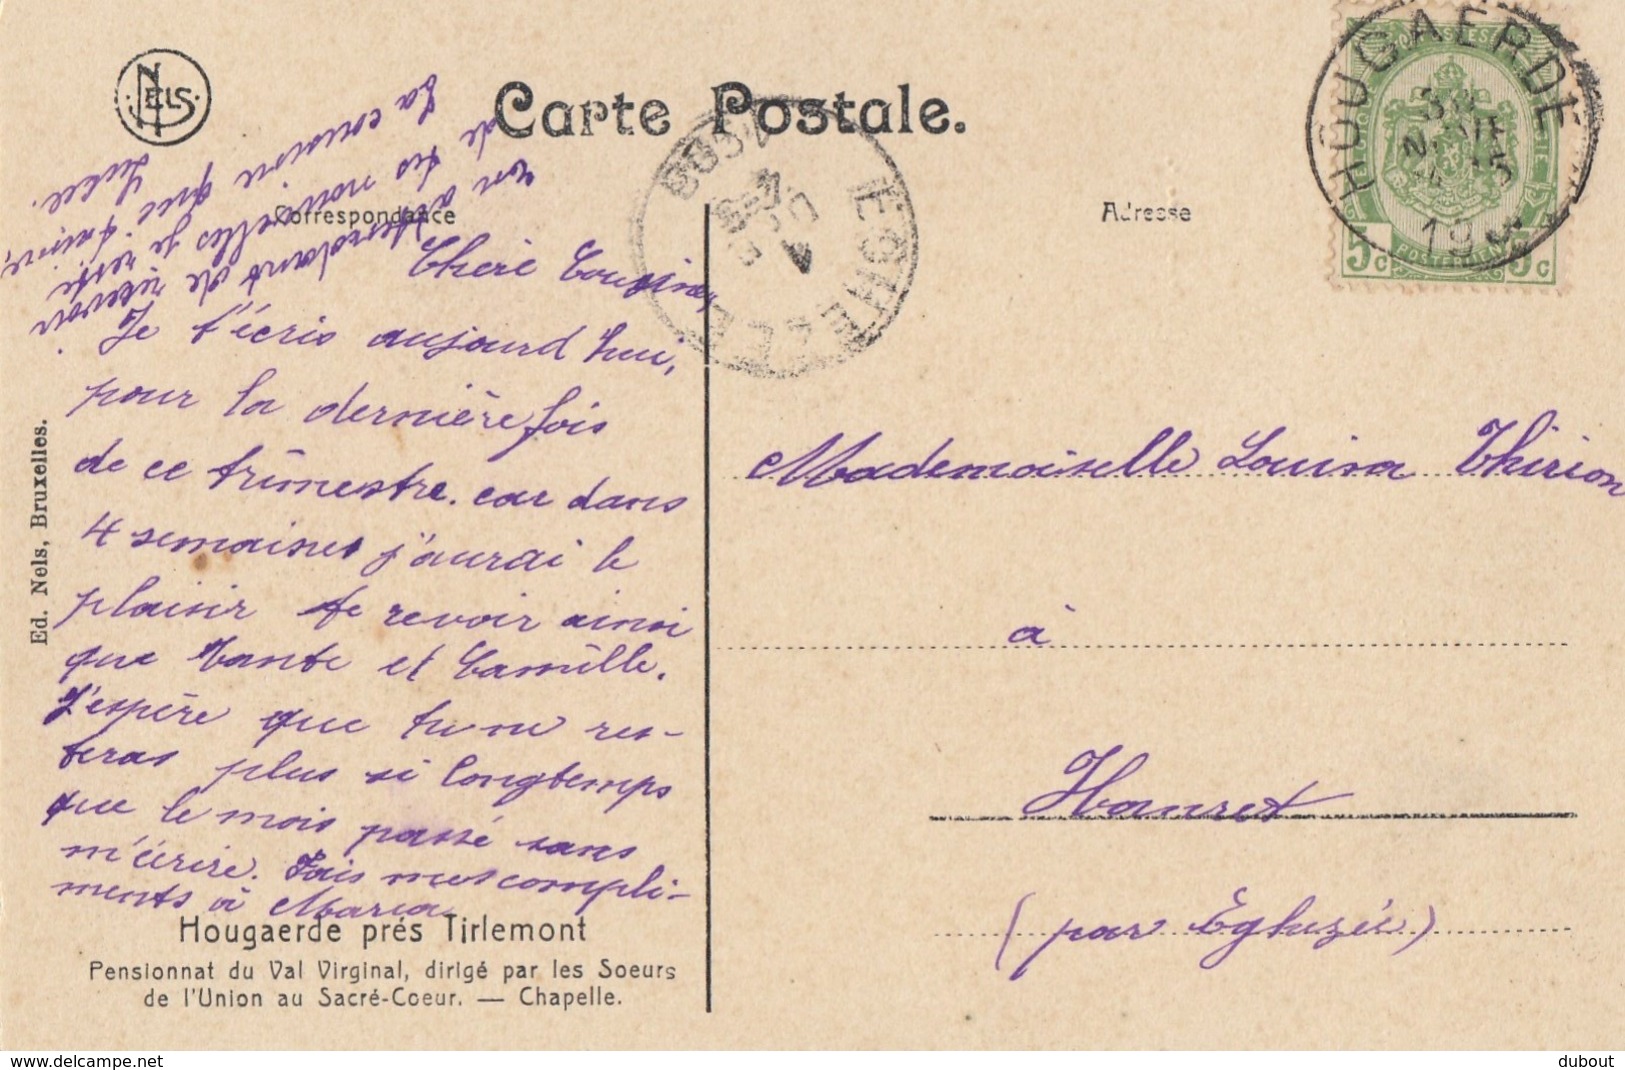 NELS
Carte Postale.
Correspondance
Adresse
HOUGAERDE
5c
5c
Chère Cousine,
Je t'écris aujourd'hui,
pour la dernière fois
de ce trimestre. car dans
4 semaines j'aurai le
plaisir te revoir ainsi
que Tante et Camille.
J'espère que tu ne res-
teras plus si longtemps
que le mois passé sans
m'écrire. Fais mes compli-
ments à Maria
en attendant de recevoir
de tes nouvelles je reste
ta cousine qui t'aime,
Mademoiselle Louisa Thirion
à
Hanret
(par Éghezée)
Ed. Nels, Bruxelles.
Hougaerde prés Tirlemont
Pensionnat du Val Virginal, dirigé par les Soeurs
de l'Union au Sacré-Coeur. — Chapelle.
www.delcampe.net
dubout